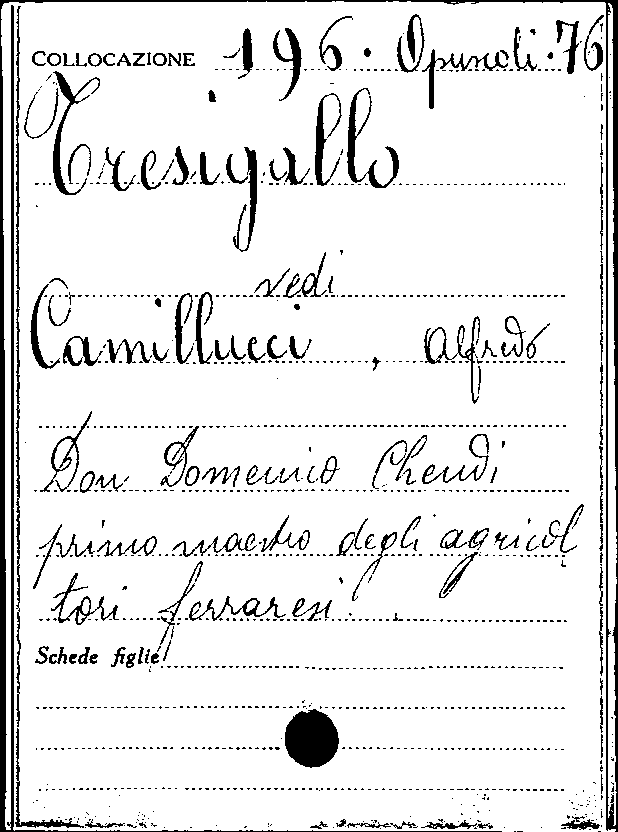 COLLOCAZIONE 196. Opuscoli. 76
Tresigallo
vedi
Camillucci, Alfredo
Don Domenico Chendi
primo maestro degli agricol
tori ferraresi.
Schede figlie